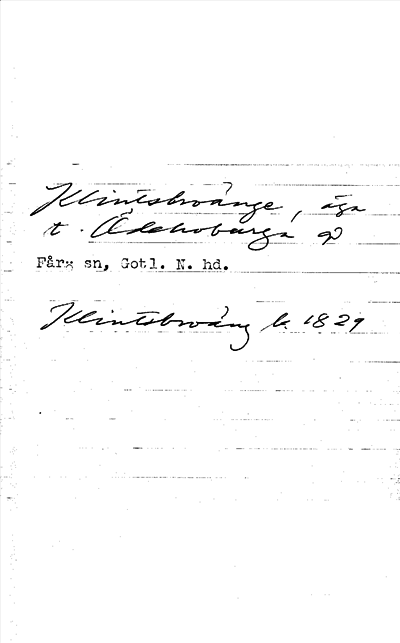 Klintsbroänge, äga
t.
Fårö sn, Gotl. N. hd.
Klintsbroäng k. 1829